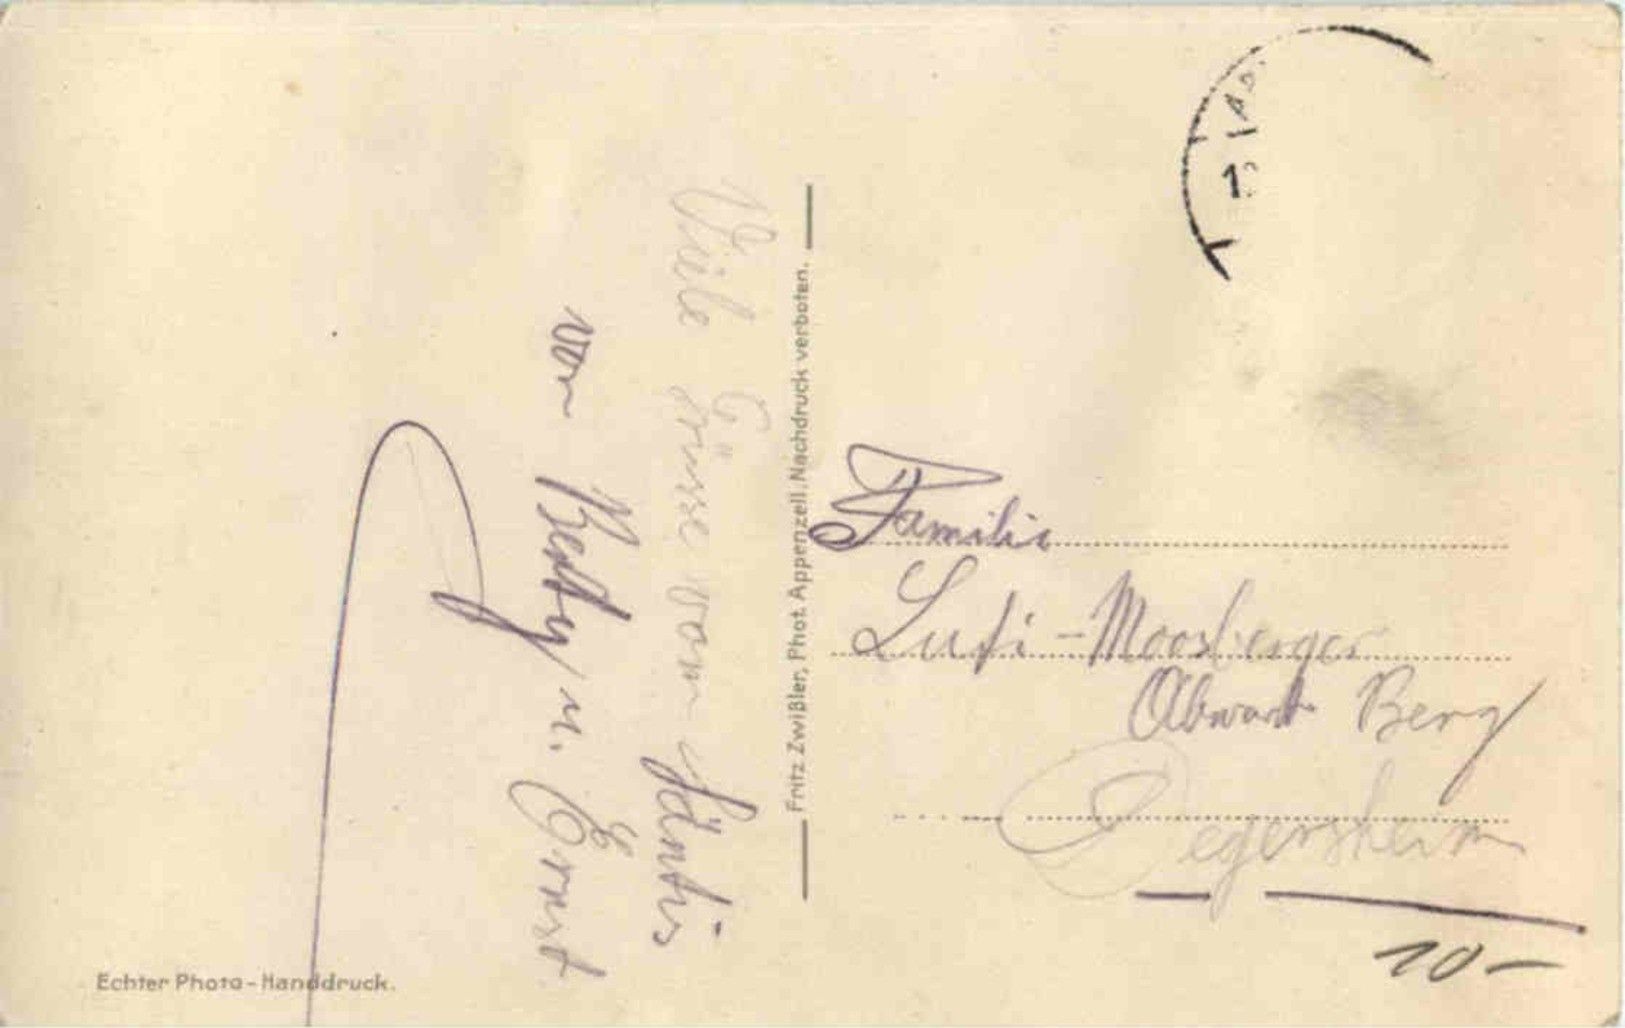 Viele Grüsse vom Säntis
von Betty u. Ernst
Fritz Zwißler, Phot. Appenzell. Nachdruck verboten.
Familie
Moosberger
Berg
Degersheim
10-
Echter Photo-Handdruck.